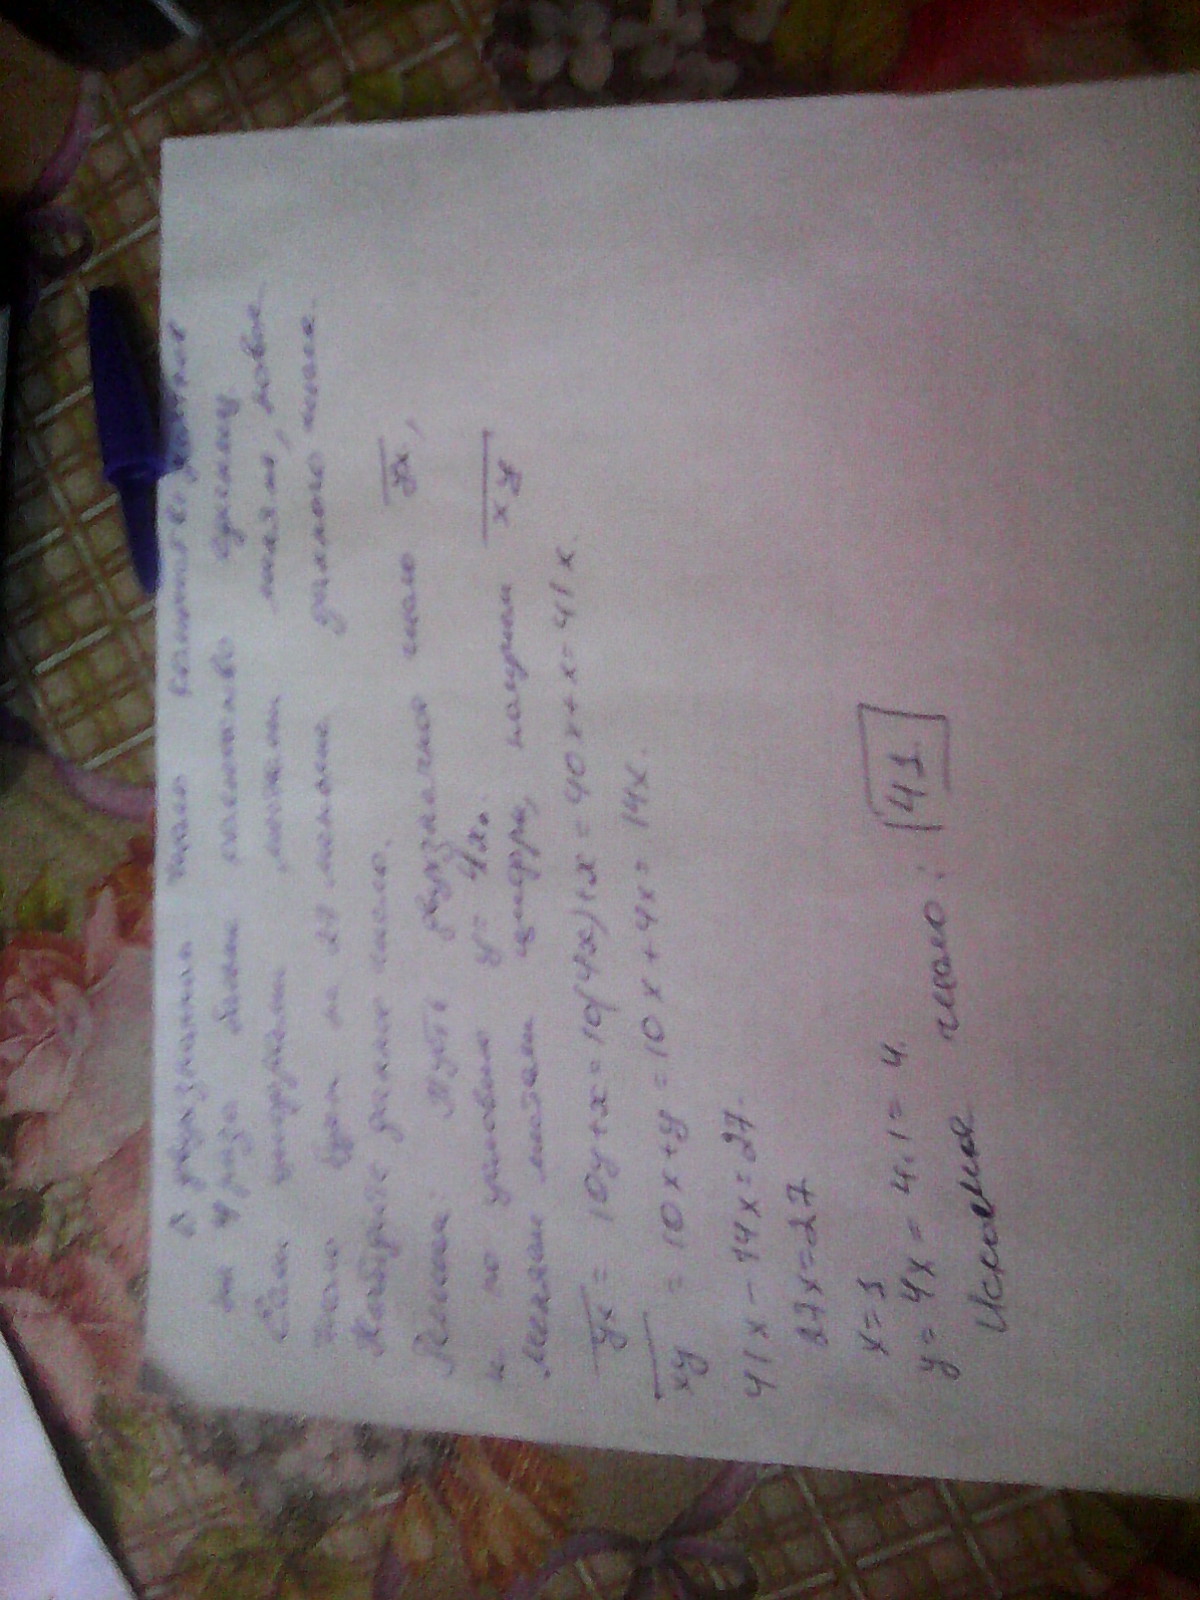 В двузначном число количество десятков
в 4 раза больше количество единиц
Если цифрами местами, новое
число будет на 27 меньше данного числа.
Найдите данное число.
Решение: Пусть двухзначное число yx,
и по условию y = 4x.
Меняем местами цифры, получим xy
yx = 10y+x = 10(4x)+x = 40x+x = 41x.
xy = 10x+y = 10x+4x = 14x.
41x - 14x = 27.
27x = 27
x = 1
y = 4x = 4.1 = 4.
Искомое число: 41